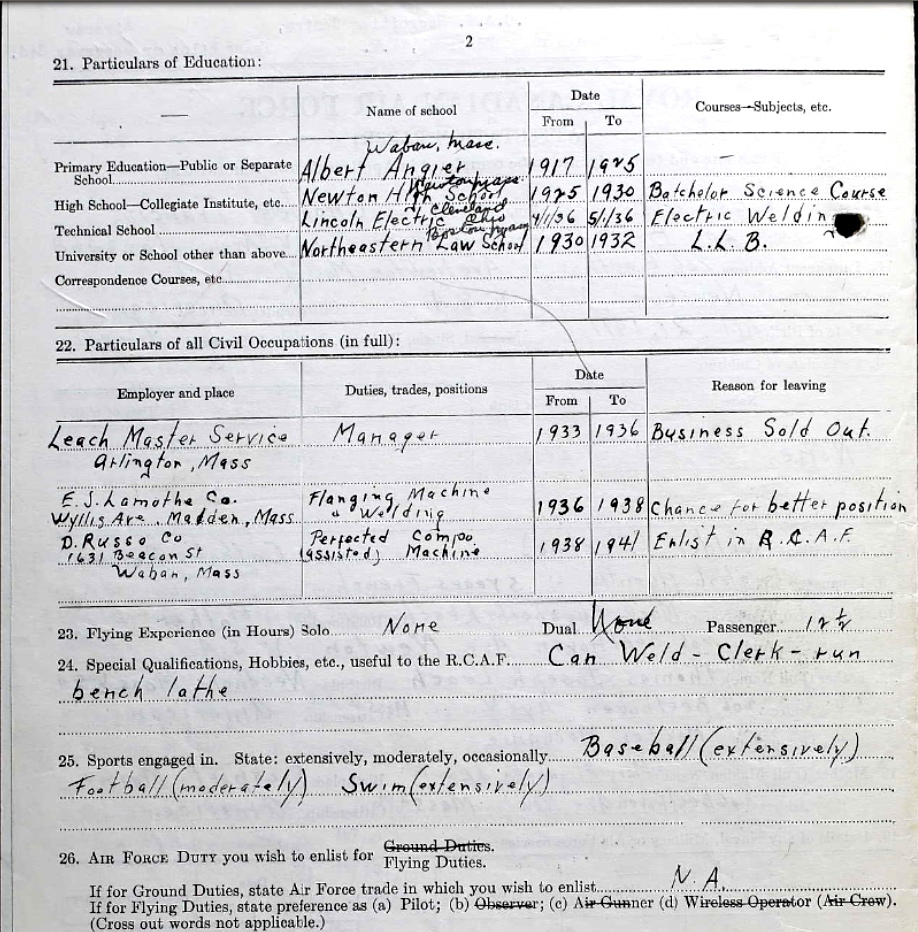 2
21. Particulars of Education:
— Name of school Date Courses—Subjects, etc.
From To
Waban, Mass.
Primary Education—Public or Separate School Albert Angier 1917 1925 —
Newton, Mass
High School—Collegiate Institute, etc. Newton High School 1925 1930 Batchelor Science Course
Cleveland
Technical School Lincoln Electric Ohio 4/1/36 5/1/36 Electric Welding
Boston, Mass
University or School other than above Northeastern Law School 1930 1932 L.L.B.
Correspondence Courses, etc.
22. Particulars of all Civil Occupations (in full):
Employer and place Duties, trades, positions Date Reason for leaving
From To
Leach Master Service Manager 1933 1936 Business Sold Out.
Arlington, Mass
E.J. Lamothe Co. Flanging Machine
Wyllis Ave. Madden, Mass & Welding 1936 1938 Chance for better position
D. Russo Co Perfected Compo. 1938 1941 Enlist in R.C.A.F.
1631 Beacon St (assisted) Machine
Waban, Mass
23. Flying Experience (in Hours) Solo None Dual None Passenger 12½
24. Special Qualifications, Hobbies, etc., useful to the R.C.A.F. Can Weld - Clerk - run
bench lathe
25. Sports engaged in. State: extensively, moderately, occasionally. Baseball (extensively)
Football (moderately) Swim (extensively)
26. AIR FORCE DUTY you wish to enlist for Ground Duties.
Flying Duties.
If for Ground Duties, state Air Force trade in which you wish to enlist N.A.
If for Flying Duties, state preference as (a) Pilot; (b) Observer; (c) Air Gunner (d) Wireless Operator (Air Crew).
(Cross out words not applicable.)